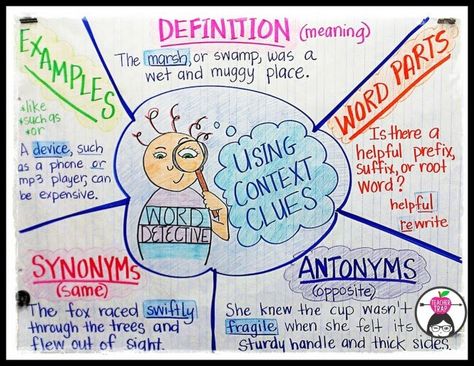 DEFINITION (meaning)
The marsh, or swamp, was a
wet and muggy place.
EXAMPLES
*like
*such as
*or
A device, such
as a phone or
mp3 player, can
be expensive.
WORD PARTS
Is there a
helpful prefix,
suffix, or root
word?
helpful
rewrite
USING
CONTEXT
CLUES
WORD
DETECTIVE
SYNONYMS
(same)
The fox raced swiftly
through the trees and
flew out of sight.
ANTONYMS
(opposite)
She knew the cup wasn't
fragile when she felt its
sturdy handle and thick sides.
TEACHER
TRAP